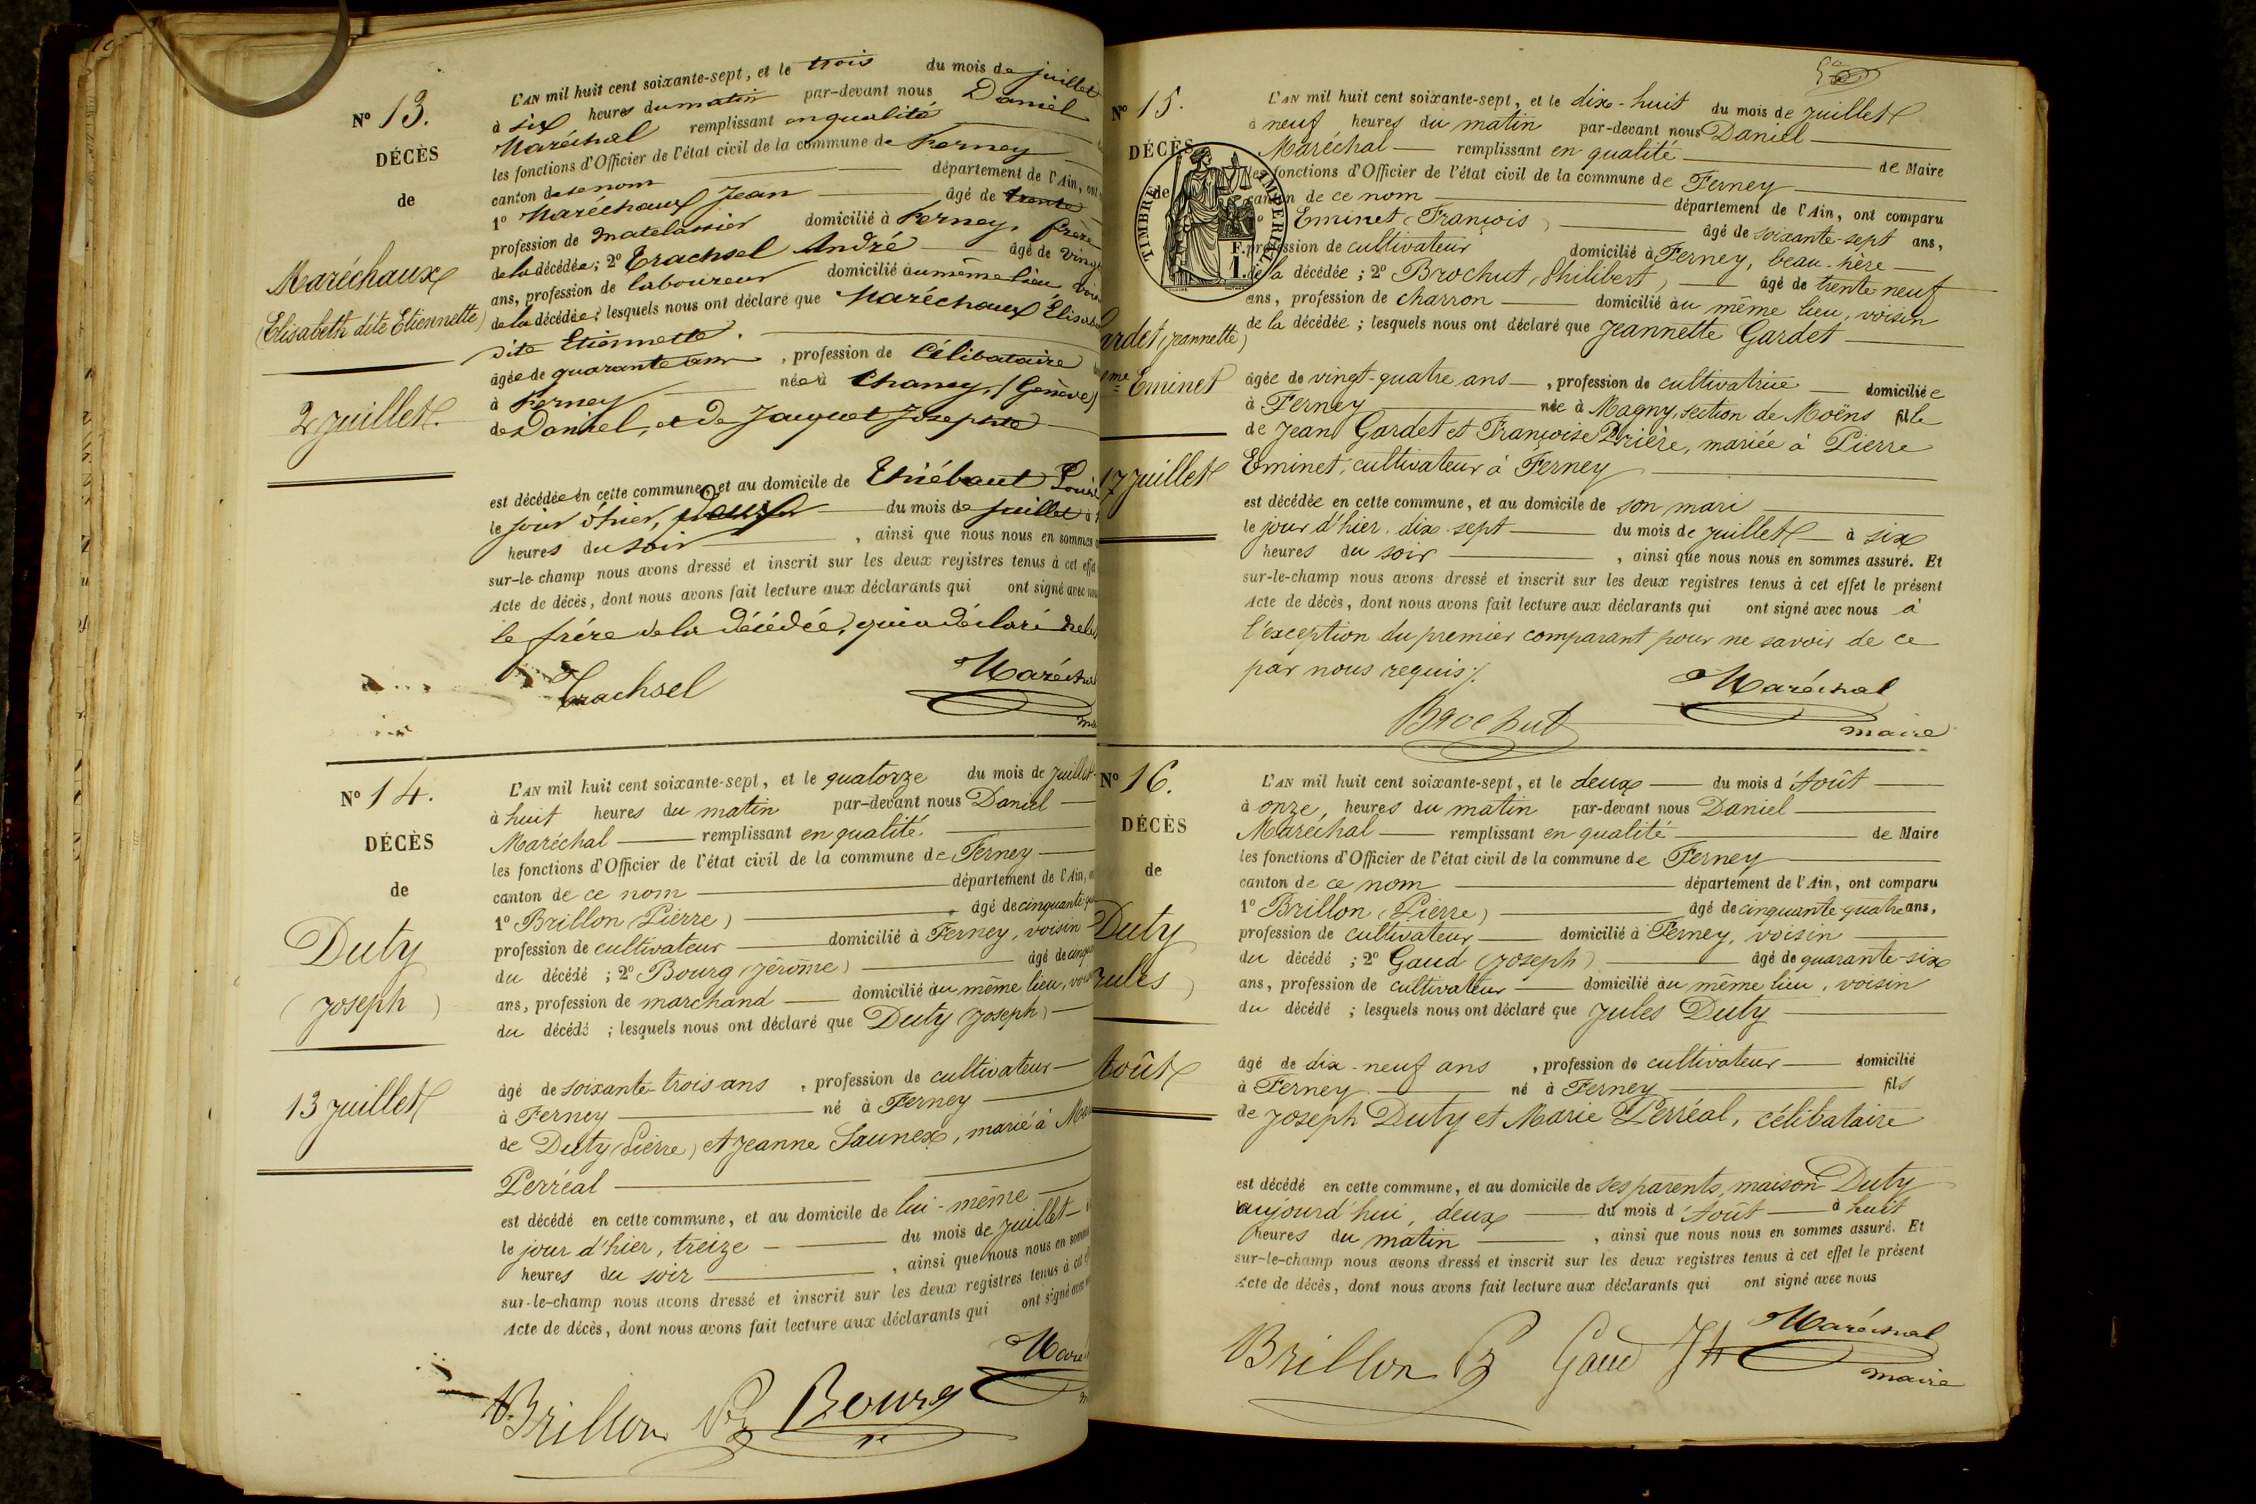 Nº 13.
DÉCÈS
de
Maréchaux
(Elisabeth dite Etiennette)
2 juillet.
L'AN mil huit cent soixante-sept, et le trois du mois de juillet
à six heures du matin par-devant nous Daniel
Maréchal remplissant en qualité
les fonctions d'Officier de l'état civil de la commune de Ferney
canton de ce nom département de l'Ain, ont
1º Maréchaux Jean âgé de trente
profession de matelassier domicilié à Ferney, frère
de la décédée; 2º Trachsel André âgé de vingt
ans, profession de laboureur domicilié au même lieu, voisin
de la décédée; lesquels nous ont déclaré que Maréchaux Elisabeth
dite Etiennette.
âgée de quarante ans, profession de Célibataire
à Ferney née à Chancy, (Genève)
de Daniel, et de Jacquet Josephte
est décédée en cette commune, et au domicile de Thiébaut Louis
le jour d'hier, deux du mois de juillet à
heures du soir, ainsi que nous nous en sommes
sur-le-champ nous avons dressé et inscrit sur les deux registres tenus à cet effet
Acte de décès, dont nous avons fait lecture aux déclarants qui ont signé avec nous
le frére de la décédée, qui a déclaré ne le
Trachsel
Maréchal
Nº 14.
DÉCÈS
de
Duty
(Joseph)
13 juillet
L'AN mil huit cent soixante-sept, et le quatorze du mois de juillet
à huit heures du matin par-devant nous Daniel
Maréchal remplissant en qualité
les fonctions d'Officier de l'état civil de la commune de Ferney
canton de ce nom département de l'Ain,
1º Brillon (Pierre) âgé de cinquante-
profession de cultivateur domicilié à Ferney, voisin
du décédé; 2º Bourg (Jérôme) âgé de
ans, profession de marchand domicilié au même lieu,
du décédé; lesquels nous ont déclaré que Duty (Joseph)
âgé de soixante-trois ans, profession de cultivateur
à Ferney né à Ferney
de Duty (Pierre) et Jeanne Saunex, marié à
Perréal
est décédé en cette commune, et au domicile de lui-même
le jour d'hier, treize du mois de juillet
heures du soir, ainsi que nous nous en
sur-le-champ nous avons dressé et inscrit sur les deux registres tenus à cet
Acte de décès, dont nous avons fait lecture aux déclarants qui ont signé
Brillon Bourg
Nº 15.
DÉCÈS
de
TIMBRE IMPÉRIAL
F.
1.
(Jeannette)
Eminet
17 juillet
L'AN mil huit cent soixante-sept, et le dix-huit du mois de juillet
à neuf heures du matin par-devant nous Daniel
Maréchal remplissant en qualité de Maire
les fonctions d'Officier de l'état civil de la commune de Ferney
canton de ce nom département de l'Ain, ont comparu
Eminet (François) âgé de soixante-sept ans,
profession de cultivateur domicilié à Ferney, beau-père
de la décédée; 2º Brochut (Philibert) âgé de trente neuf
ans, profession de charron domicilié au même lieu, voisin
de la décédée; lesquels nous ont déclaré que Jeannette Gardet
âgée de vingt-quatre ans, profession de cultivatrice domiciliée
à Ferney née à Magny, section de Moëns fille
de Jean Gardet et Françoise Prière, mariée à Pierre
Eminet, cultivateur à Ferney
est décédée en cette commune, et au domicile de son mari
le jour d'hier, dix-sept du mois de juillet à six
heures du soir, ainsi que nous nous en sommes assuré. Et
sur-le-champ nous avons dressé et inscrit sur les deux registres tenus à cet effet le présent
Acte de décès, dont nous avons fait lecture aux déclarants qui ont signé avec nous à
l'exception du premier comparant pour ne savoir de ce
par nous requis/.
Brochut
Maréchal
maire
Nº 16.
DÉCÈS
de
Duty
Jules)
Août
L'AN mil huit cent soixante-sept, et le deux du mois d'Août
à onze heures du matin par-devant nous Daniel
Maréchal remplissant en qualité de Maire
les fonctions d'Officier de l'état civil de la commune de Ferney
canton de ce nom département de l'Ain, ont comparu
1º Brillon (Pierre) âgé de cinquante-quatre ans,
profession de cultivateur domicilié à Ferney, voisin
du décédé; 2º Gaud (Joseph) âgé de quarante-six
ans, profession de cultivateur domicilié au même lieu, voisin
du décédé; lesquels nous ont déclaré que Jules Duty
âgé de dix-neuf ans, profession de cultivateur domicilié
à Ferney né à Ferney fils
de Joseph Duty et Marie Perréal, célibataire
est décédé en cette commune, et au domicile de ses parents, maison Duty
aujourd'hui, deux du mois d'Août à huit
heures du matin, ainsi que nous nous en sommes assuré. Et
sur-le-champ nous avons dressé et inscrit sur les deux registres tenus à cet effet le présent
Acte de décès, dont nous avons fait lecture aux déclarants qui ont signé avec nous
Brillon Gaud Jh
Maréchal
maire